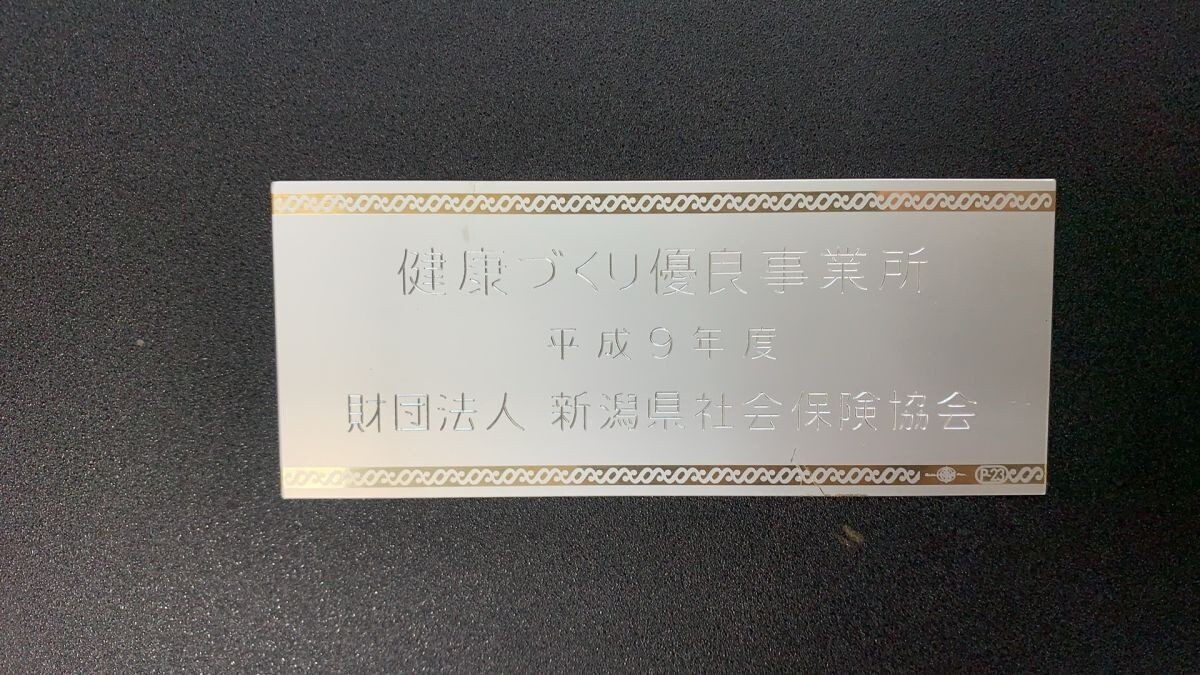 健康づくり優良事業所
平成9年度
財団法人 新潟県社会保険協会
P-23